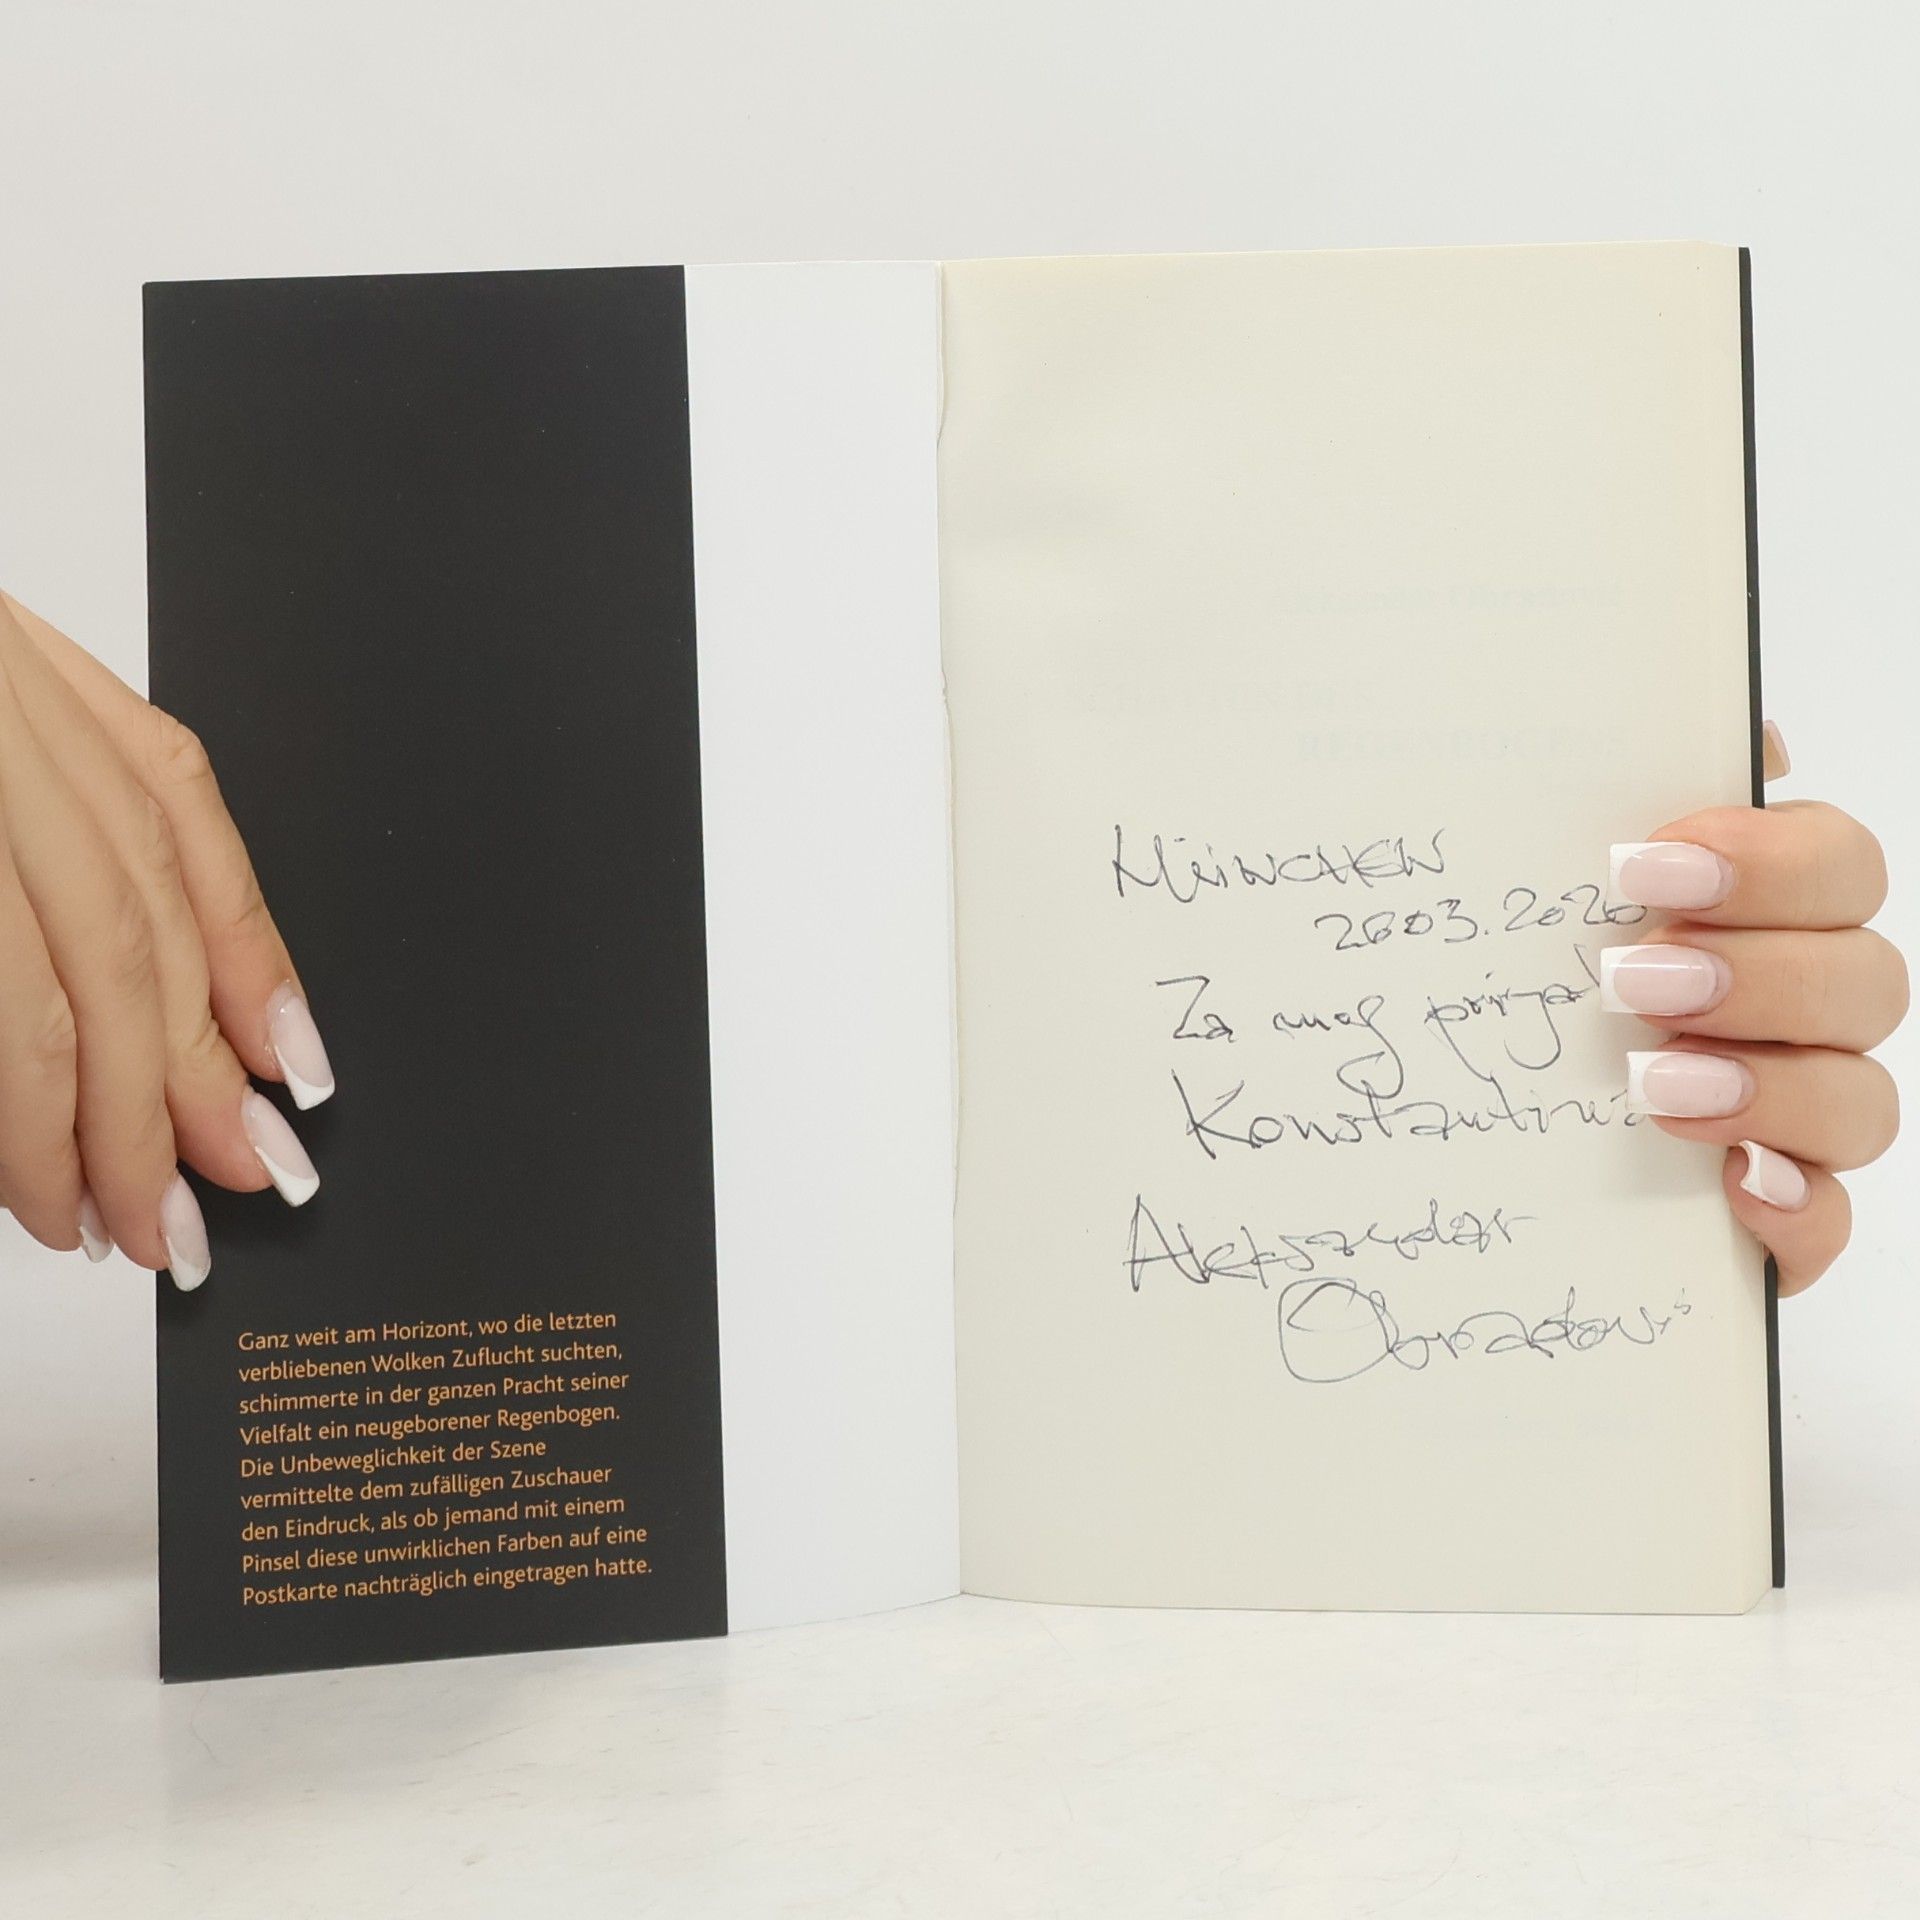 Ganz weit am Horizont, wo die letzten
verbliebenen Wolken Zuflucht suchten,
schimmerte in der ganzen Pracht seiner
Vielfalt ein neugeborener Regenbogen.
Die Unbeweglichkeit der Szene
vermittelte dem zufälligen Zuschauer
den Eindruck, als ob jemand mit einem
Pinsel diese unwirklichen Farben auf eine
Postkarte nachträglich eingetragen hatte.
MÜNCHEN
2603.2020
Za mog
Konstantina
Aleksandar
Obradović